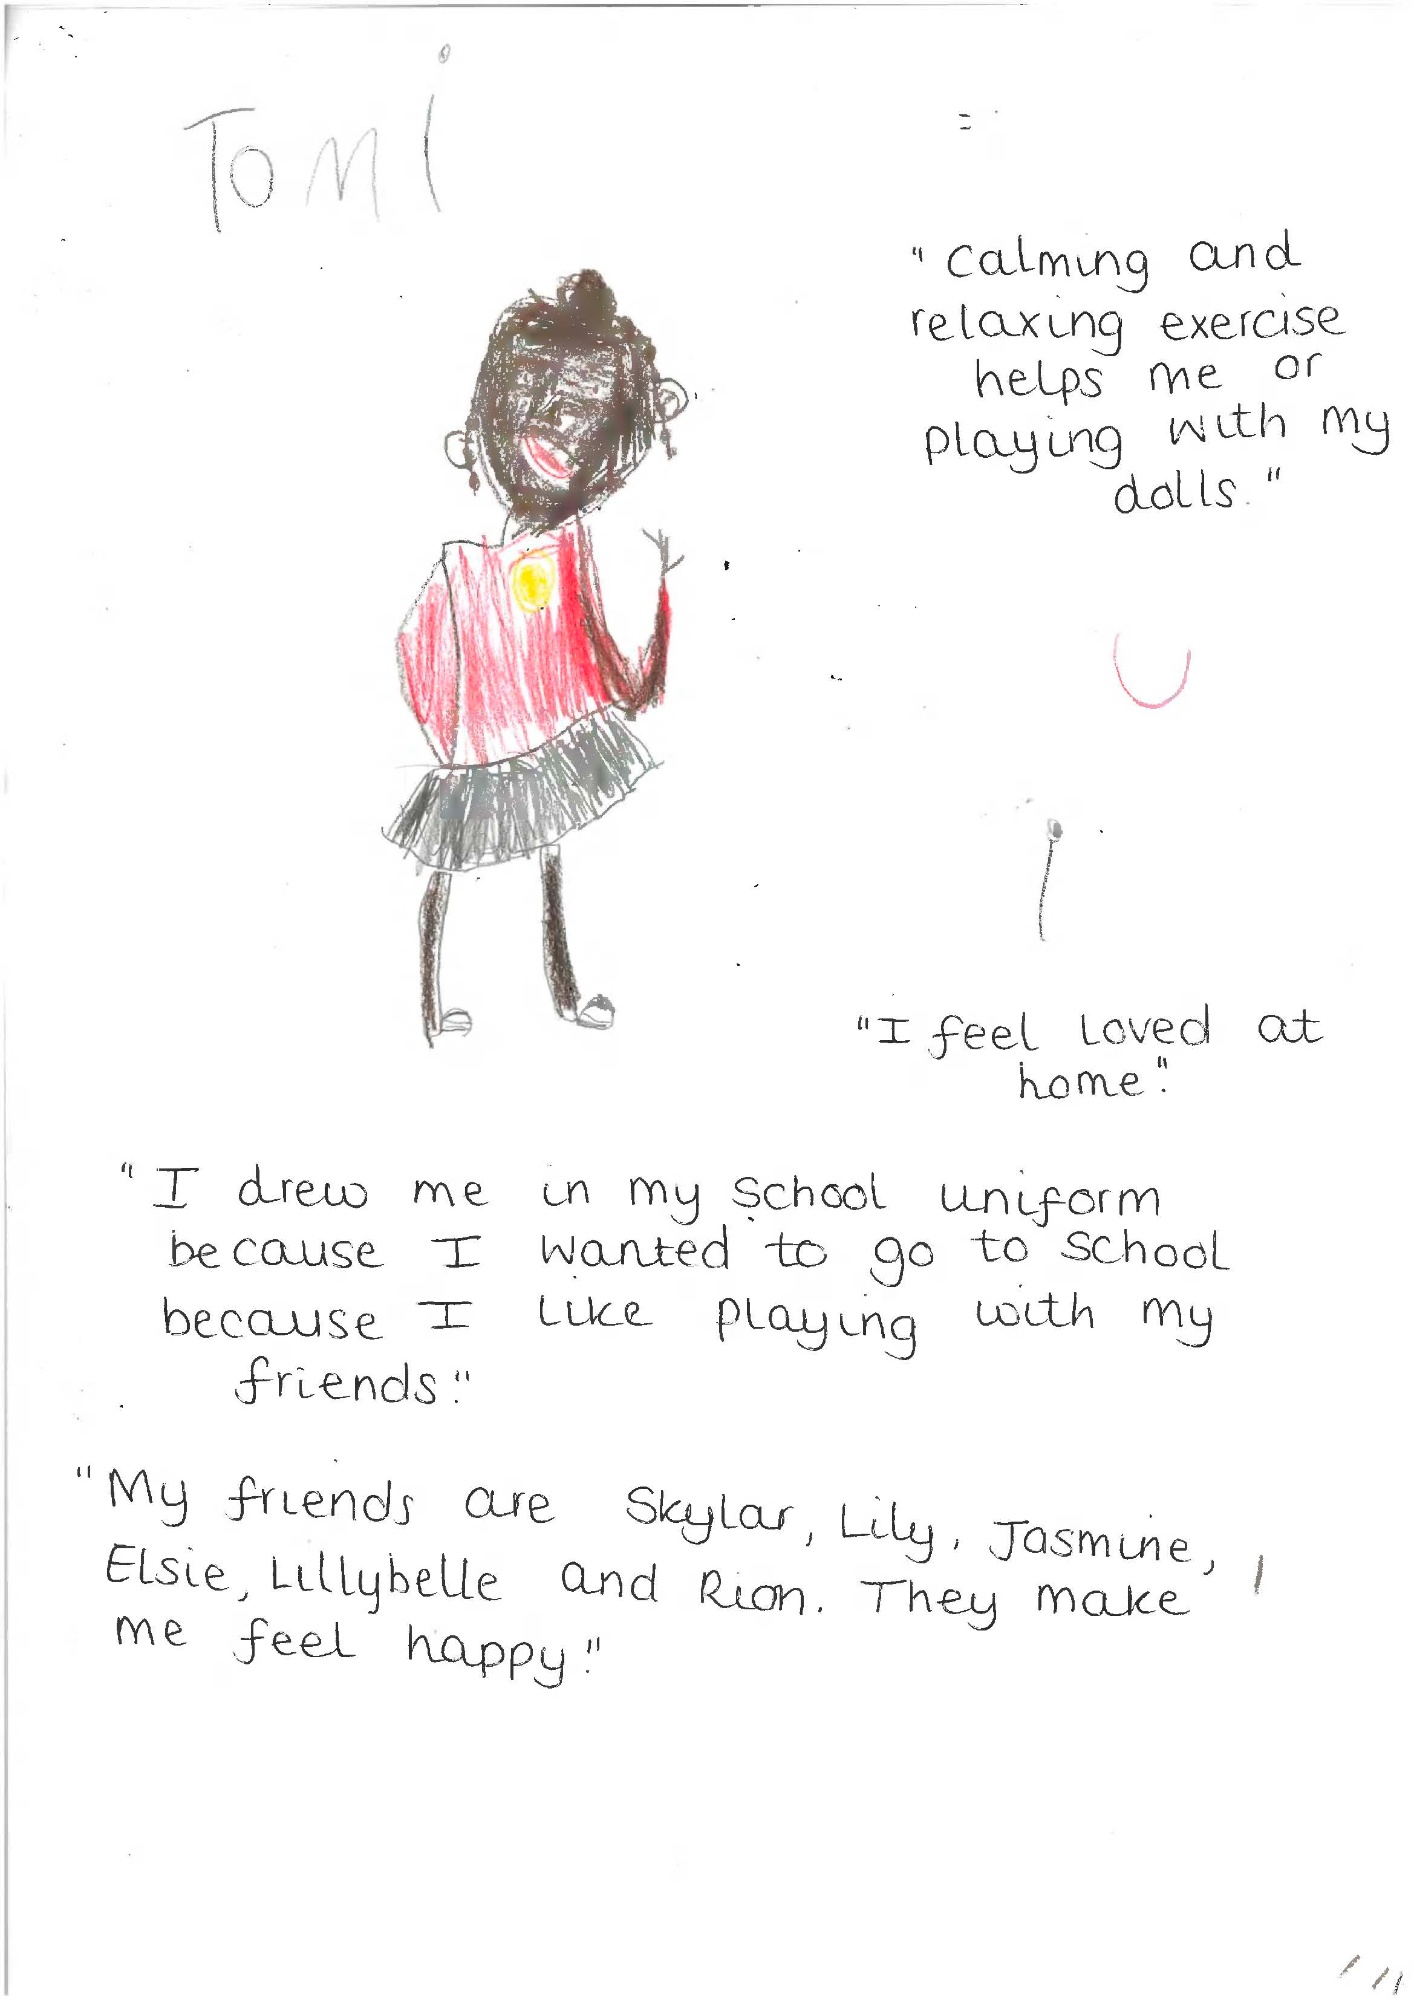 Tomi
"Calming and
relaxing exercise
helps me or
playing with my
dolls."
"I feel loved at
home."
"I drew me in my school uniform
because I wanted to go to school
because I like playing with my
friends."
"My friends are Skylar, Lily, Jasmine,
Elsie, Lillybelle and Rion. They make
me feel happy."